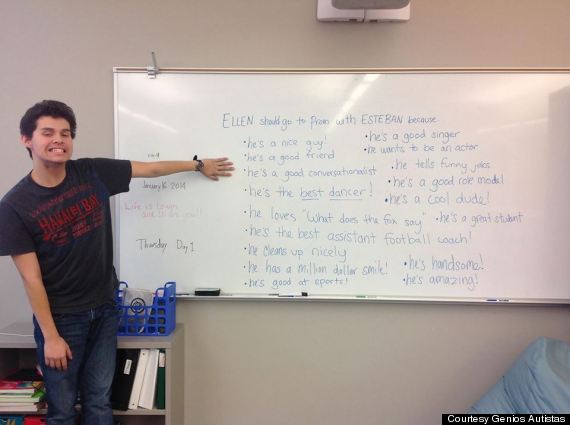 ELLEN should go to Prom with ESTEBAN because:
•he's a nice guy!
•he's a good friend
•he's a good conversationalist
•he's the best dancer!
•he loves "What does the fox say"
•he's the best assistant football coach!
•he cleans up nicely
•he has a million dollar smile!
•he's good at sports!
•he's a good singer
•he wants to be an actor
•he tells funny jokes
•he's a good role model
•he's a cool dude!
•he's a great student
•he's handsome!
•he's amazing!
January 16 2014
Life is tough,
Thursday Day 1
HAWAII
BAY
Courtesy Genios Autistas